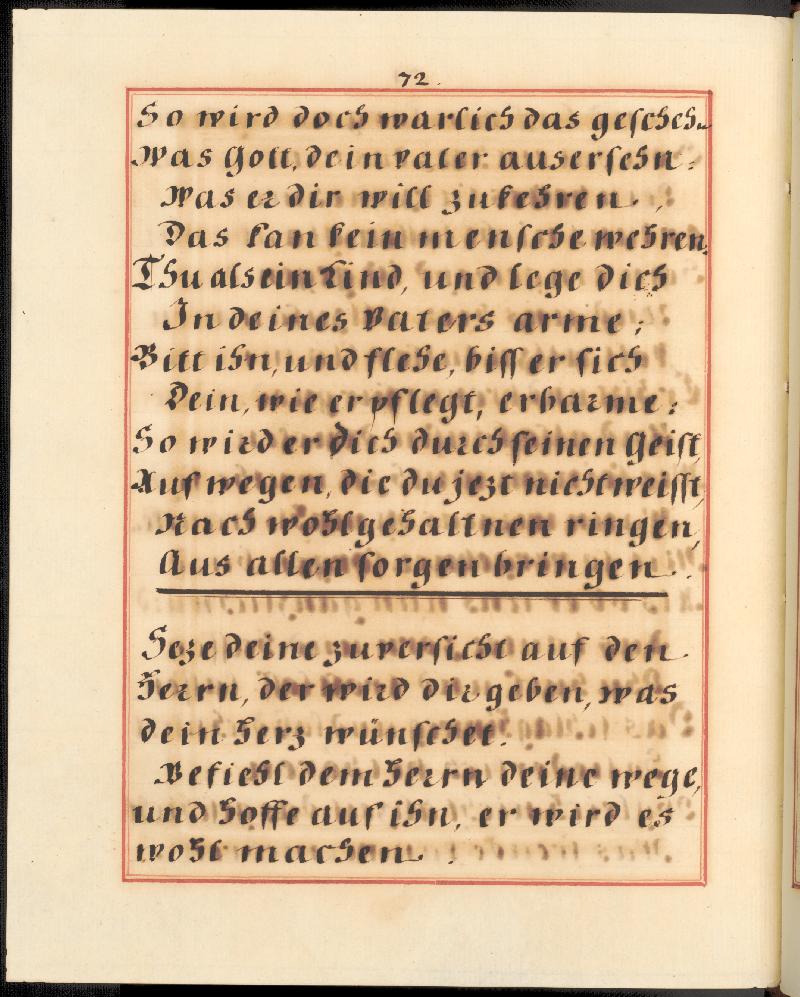 72.
So wird doch warlich das gescheh̄
Was Gott, dein vater ausersehn:
Was er dir will zukehren.
Das kan kein mensche wehren.
Thu als ein Kind, und lege dich
In deines Vaters arme;
Bitt ihn, und flehe, biss er sich
Dein, wie er pflegt, erbarme:
So wird er dich durch seinen Geist,
Auf wegen, die du jezt nicht weisst,
Nach wohlgehaltnen ringen,
Aus allen sorgen bringen.
Seze deine zuversicht auf den
Herrn, der wird dir geben, was
dein Herz wünschet.
Befiehl dem Herrn deine wege,
und hoffe auf ihn, er wird es
wohl machen.